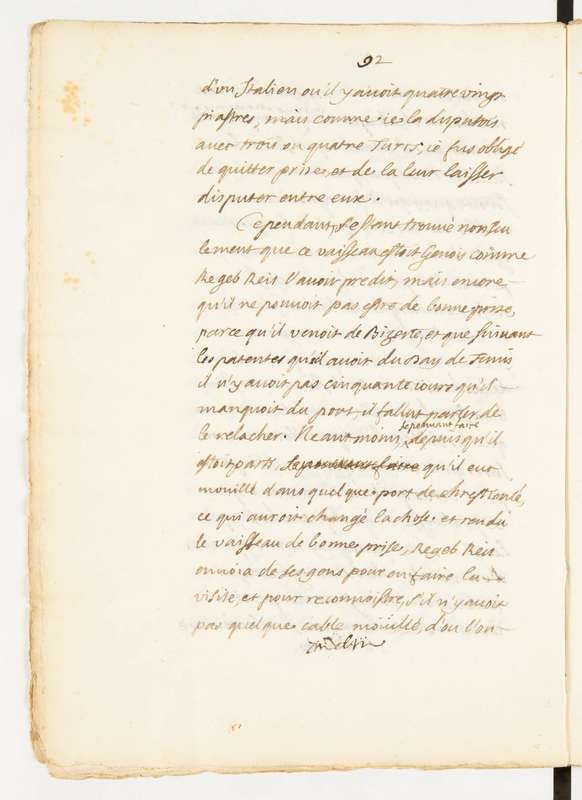 92
d'vn Italien ou il y auoit quatre vingt
piastres, mais comme ie la disputois
auec trois ou quatre Turcs, ie fus obligé
de quitter prise, et de la leur laisser
disputer entre eux.
Cependant, s'estant trouué non seu
lement que ce vaisseau estoit Genois comme
Regeb Reis l'auoit predit, mais encore
qu'il ne pouuoit pas estre de bonne prise,
parce qu'il venoit de Bizerte, et que suiuant
les patentes qu'il auoit du Day de Tunis
il n'y auoit pas cinquante iours qu'il
manquoit du port, il fallut parler de
le relacher. Neantmoins se pouuant faire depuis qu'il
estoit parti se pouuant faire qu'il eut
mouillé dans quelque port de chrestienté,
ce qui auroit changé la chose et rendu
le vaisseau de bonne prise, Regeb Reis
enuoia de ses gens pour en faire la
visite, et pour reconnoistre, s'il n'y auoit
pas quelque cable moüillé, d'ou l'on